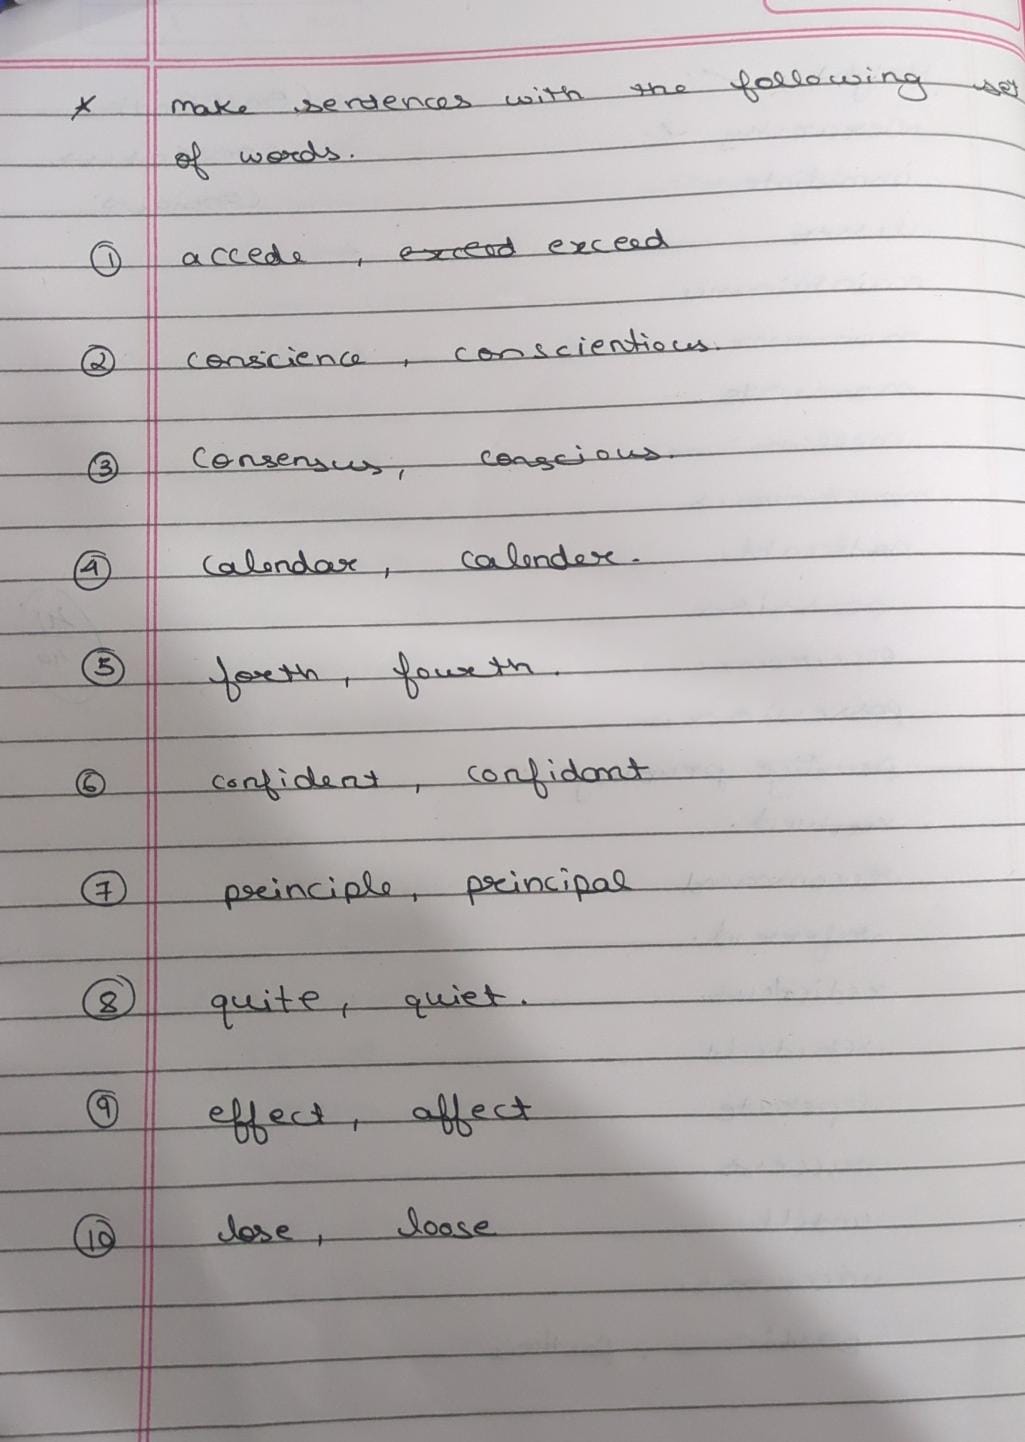 * make sentences with the following set
of words.
① accede, exceed exceed
② conscience, conscientious.
③ consensus, conscious.
④ calendar, calender.
⑤ forth, fourth.
⑥ confident, confidant
⑦ principle, principal
⑧ quite, quiet.
⑨ effect, affect
⑩ lose, loose